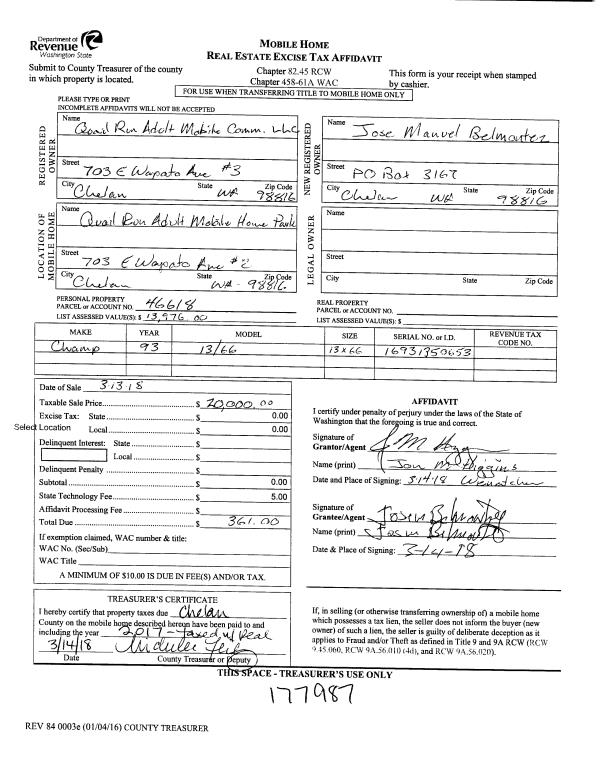 Department of
Revenue
Washington State
MOBILE HOME
REAL ESTATE EXCISE TAX AFFIDAVIT
Submit to County Treasurer of the county
in which property is located.
Chapter 82.45 RCW
Chapter 458-61A WAC
This form is your receipt when stamped
by cashier.
FOR USE WHEN TRANSFERRING TITLE TO MOBILE HOME ONLY
PLEASE TYPE OR PRINT
INCOMPLETE AFFIDAVITS WILL NOT BE ACCEPTED
REGISTERED OWNER
Name
Quail Run Adult Mobile Comm. LLC
Street 703 E Wapato Ave #3
City State Zip Code
Chelan WA 98816
NEW REGISTERED OWNER
Name
Jose Manuel
Street
PO Box 3167
City State Zip Code
Chelan WA 98816
LOCATION OF MOBILE HOME
Name
Quail Run Adult Mobile Home Park
Street
703 E Wapato Ave #2
City State Zip Code
Chelan WA - 98816
LEGAL OWNER
Name
Street
City State Zip Code
PERSONAL PROPERTY
PARCEL or ACCOUNT NO. 46618
LIST ASSESSED VALUE(S): $ 13,976.00
REAL PROPERTY
PARCEL or ACCOUNT NO.
LIST ASSESSED VALUE(S): $
MAKE YEAR MODEL SIZE SERIAL NO. or I.D. REVENUE TAX CODE NO.
Champ 93 13/66 13x66 16931950653
Date of Sale 3-13-18
Taxable Sale Price $ 20,000.00
Excise Tax: State $ 0.00
Select Location Local $ 0.00
Delinquent Interest: State $
Local $
Delinquent Penalty $
Subtotal $ 0.00
State Technology Fee $ 5.00
Affidavit Processing Fee $
Total Due $ 361.00
If exemption claimed, WAC number & title:
WAC No. (Sec/Sub)
WAC Title
A MINIMUM OF $10.00 IS DUE IN FEE(S) AND/OR TAX.
AFFIDAVIT
I certify under penalty of perjury under the laws of the State of
Washington that the foregoing is true and correct.
Signature of
Grantor/Agent
Name (print) Jon M Higgins
Date and Place of Signing: 3-14-18 Wenatchee
Signature of
Grantee/Agent
Name (print)
Date & Place of Signing: 3-14-18
TREASURER'S CERTIFICATE
I hereby certify that property taxes due Chelan
County on the mobile home described hereon have been paid to and
including the year 2017 - taxed w/ Real
3/14/18
Date County Treasurer or Deputy
If, in selling (or otherwise transferring ownership of) a mobile home
which possesses a tax lien, the seller does not inform the buyer (new
owner) of such a lien, the seller is guilty of deliberate deception as it
applies to Fraud and/or Theft as defined in Title 9 and 9A RCW (RCW
9.45.060, RCW 9A.56.010 (4d), and RCW 9A.56.020).
THIS SPACE - TREASURER'S USE ONLY
177987
REV 84 0003e (01/04/16) COUNTY TREASURER